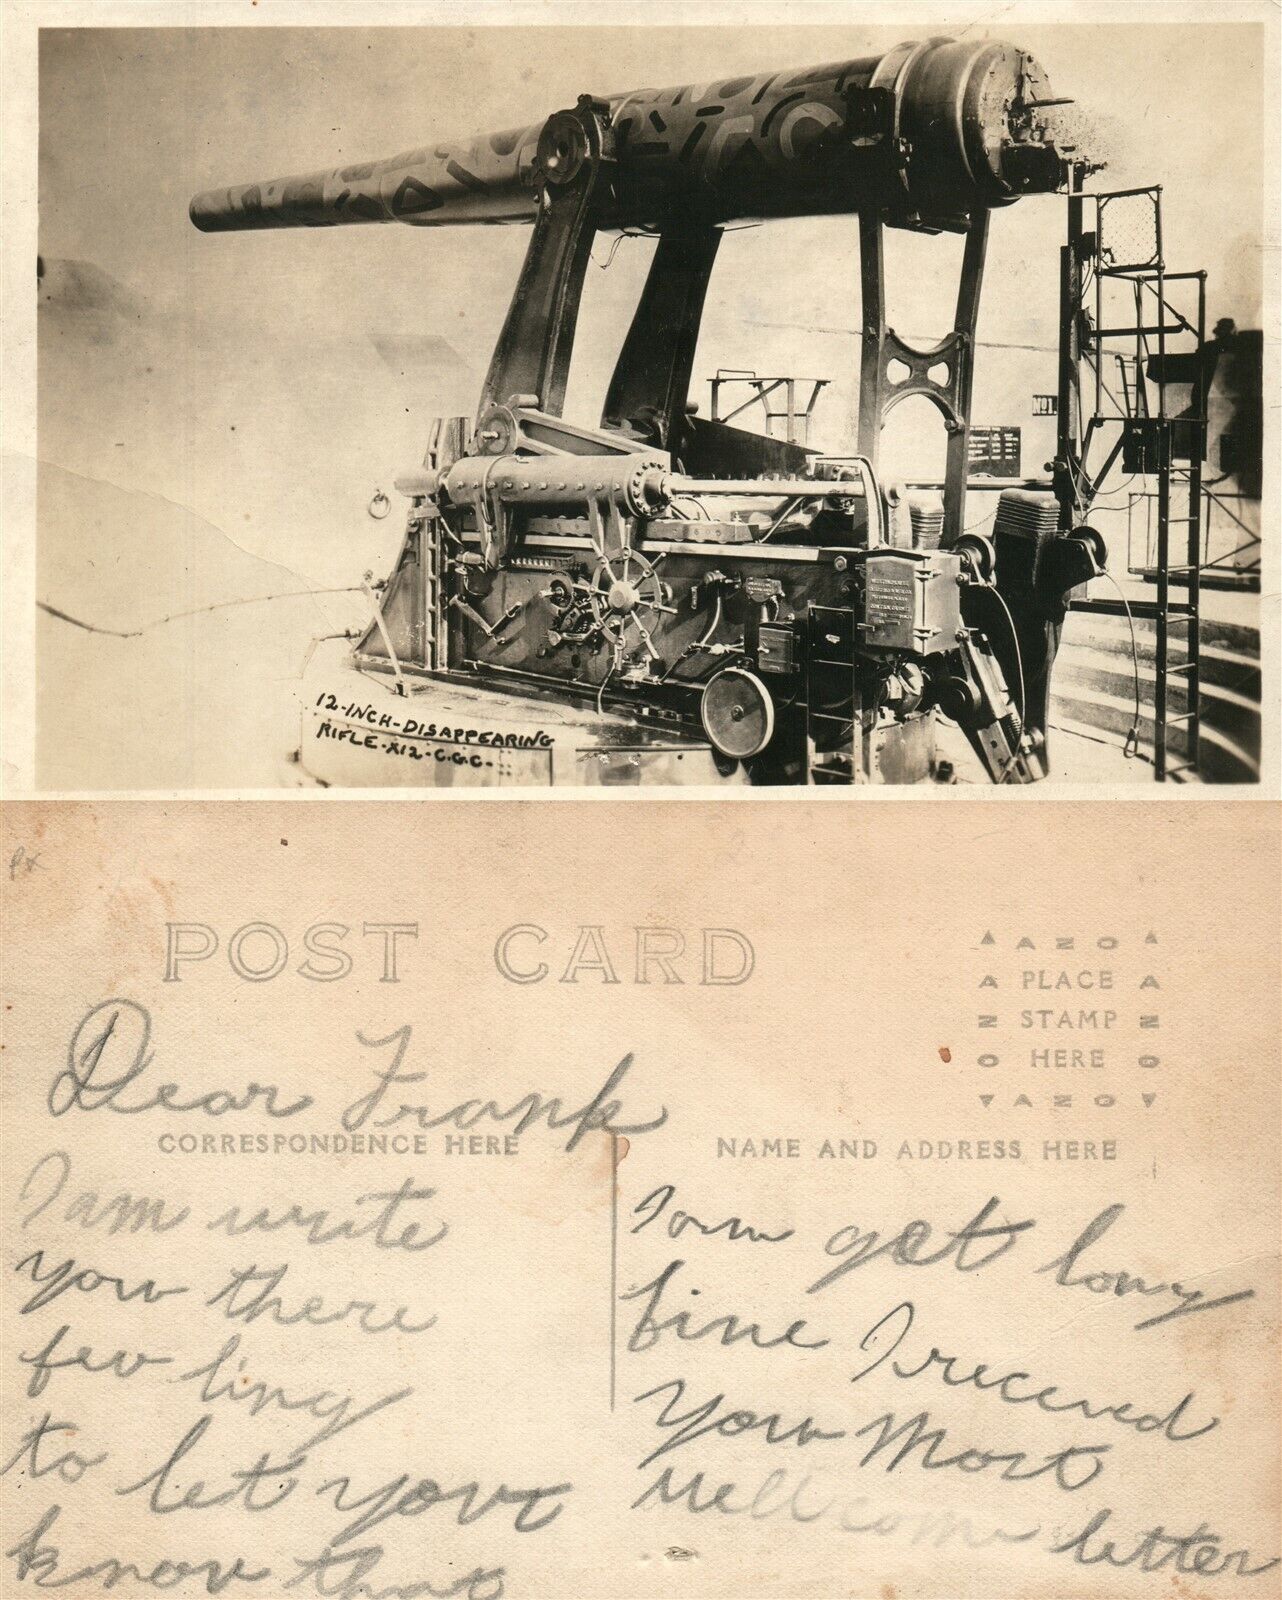 No1
12-INCH-DISAPPEARING
RIFLE-X12-C.G.C-
POST CARD
AZO
PLACE
STAMP
HERE
AZO
Dear Frank
CORRESPONDENCE HERE
NAME AND ADDRESS HERE
I am write
you there
few ling
to let your
know that
I am get long
fine I receved
your Most
Well come letter